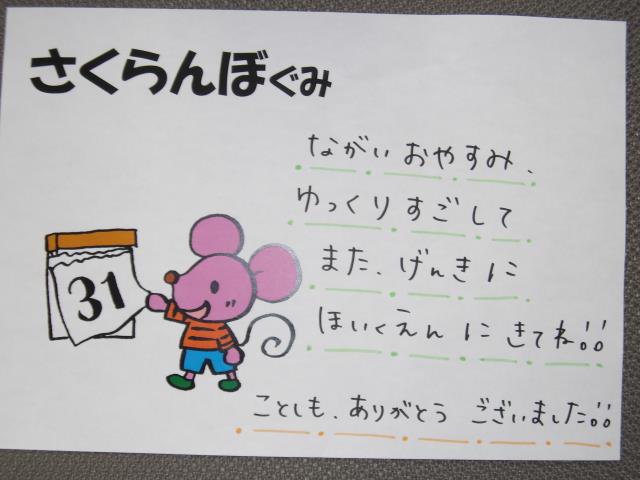 さくらんぼぐみ
ながいおやすみ、
ゆっくりすごして
また、げんきに
31
ほいくえんにきてね!!
ことしも、ありがとうございました!!